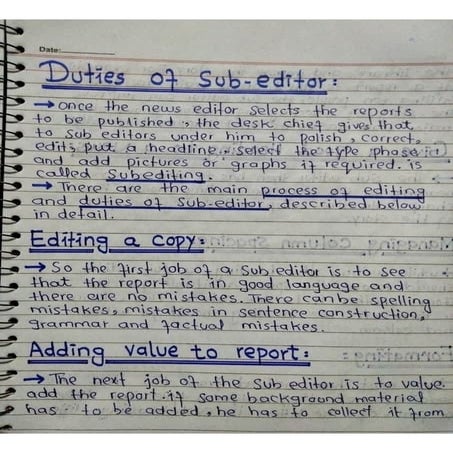 Date:
Duties of Sub-editor:
→ once the news editor selects the reports
to be published, the desk chief gives that
to sub editors under him to polish, correct,
edit, put a headline, select the type phase
and add pictures or graphs if required. is
called Subediting.
→ There are the main process of editing
and duties of Sub-editor, described below
in detail.
Editing a copy:
→ So the first job of a Sub editor is to see
that the report is in good language and
there are no mistakes. There can be spelling
mistakes, mistakes in sentence construction,
grammar and factual mistakes.
Adding value to report:
→ The next job of the Sub editor is to value
add the report. if some background material
has to be added, he has to collect it from